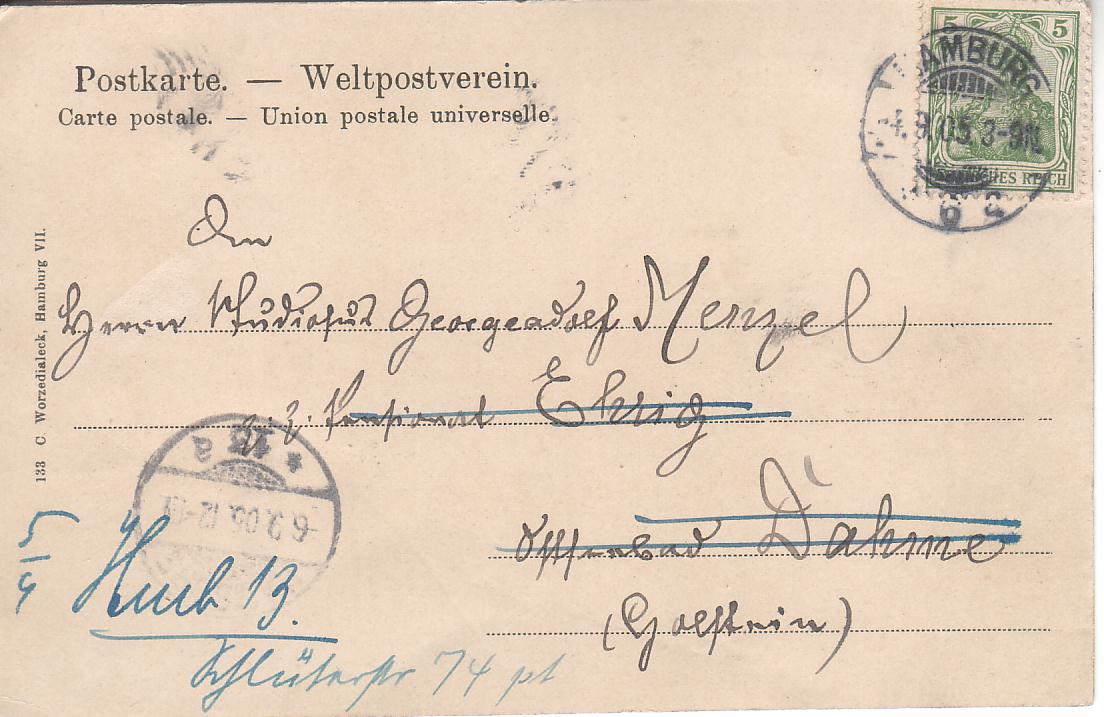 Postkarte. — Weltpostverein.
Carte postale. — Union postale universelle.
5 5
HAMBURG
4.9.05.3-9N.
DEUTSCHES REICH
An
Herrn Studiosus Georgeadolf Menzel
z. Z. Pensionat Ehrig
Ostseebad Dahme
(Holstein)
133 C. Worzedialeck, Hamburg VII.
13
6.9.05.
5/9
Hmb 13.
Schlüterstr 74 pt